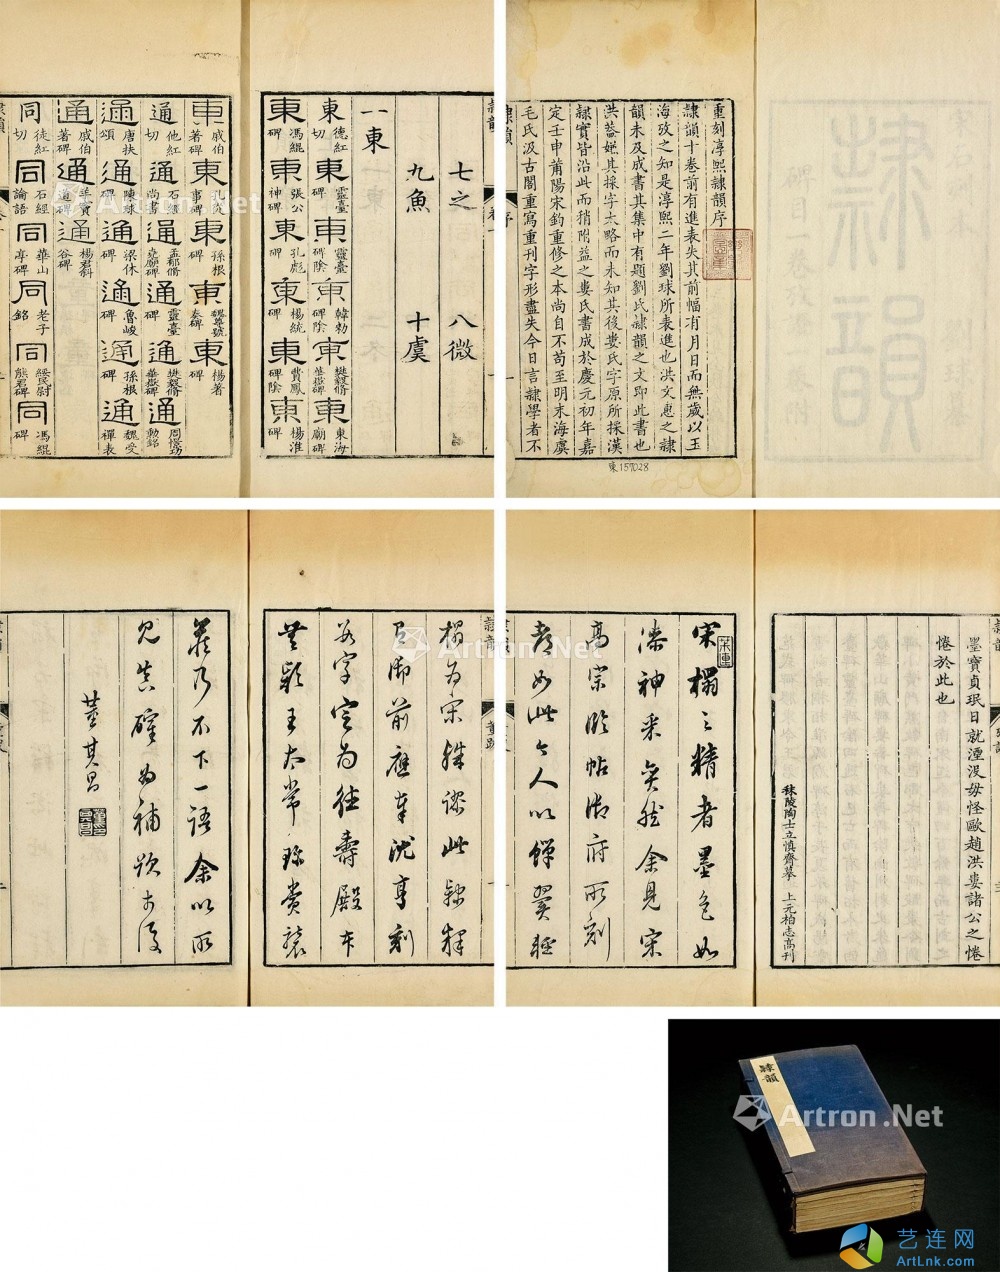 重刻淳熙隸韻序
隸韻十卷前有進表失其前幅有月日而無歲以玉
海攷之知是淳熙二年劉球所表進也洪文惠之隸
韻未及成書其集中有題劉氏隸韻之文即此書也
洪蓋嫌其採字太略而未知其後婁氏字原所採漢
隸實皆沿此而稍附益之婁氏書成於慶元初年嘉
定壬申莆陽宋鈞重修之本尚自不苟至明末海虞
毛氏汲古閣重寫重刊字形盡失今日言隸學者不
隸韻 序
東157028
隸韻
七之 八微
九魚 十虞
一東
東 德紅切 東 靈臺碑 東 靈臺碑陰 東 韓勑碑陰 東 樊毅脩華嶽碑 東 東海廟碑
東 馮緄碑 東 張公神碑 東 孔彪碑 東 楊統碑 東 費鳳碑陰 東 楊淮碑
東 戚伯著碑 東 事碑 東 孫根碑 東 魏尊號奏碑 東 楊著碑
通 他紅切 通 石經尚書 通 孟郁脩堯廟碑 通 靈臺碑 通 樊毅脩華嶽碑 通 周憬功勳銘
通 唐扶頌 通 陳球碑 通 梁休碑 通 魯峻碑 通 孫根碑 通 魏受禪表
通 戚伯著碑 通 羊竇道碑 通 楊君斜谷碑
同 徒紅切 同 石經論語 同 華山亭碑 同 老子銘 同 綏民尉熊君碑 同 馮緄碑
墨寶貞珉日就湮沒毋怪歐趙洪婁諸公之惓
惓於此也
秣陵陶士立慎齋摹 上元柏志高刊
宋搨之精者墨色如
漆神采奐然余見宋
高宗臨帖御府所刻
如此令人以
搨為宋 此隸釋
御前應奉沈亨刻
字定為德壽殿本
無疑王太常珎賞裝
乃不下一語余以所
見真確為補跋於後
董其昌
隸韻
Artron.Net
艺连网
ArtLnk.com